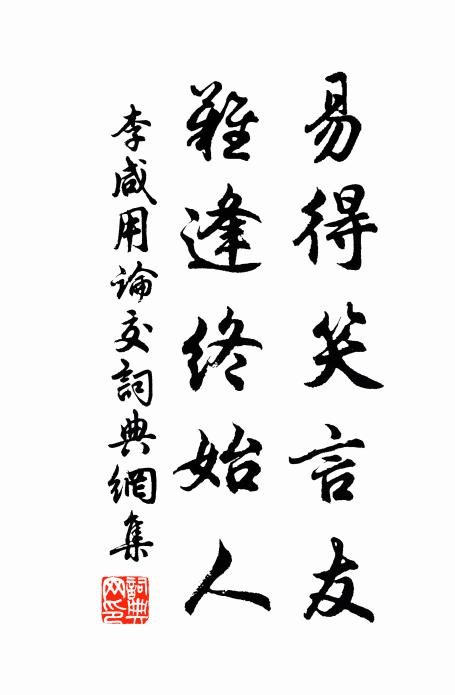 易得笑言友
難逢終始人
李咸用論交詞典網集
詞典網印